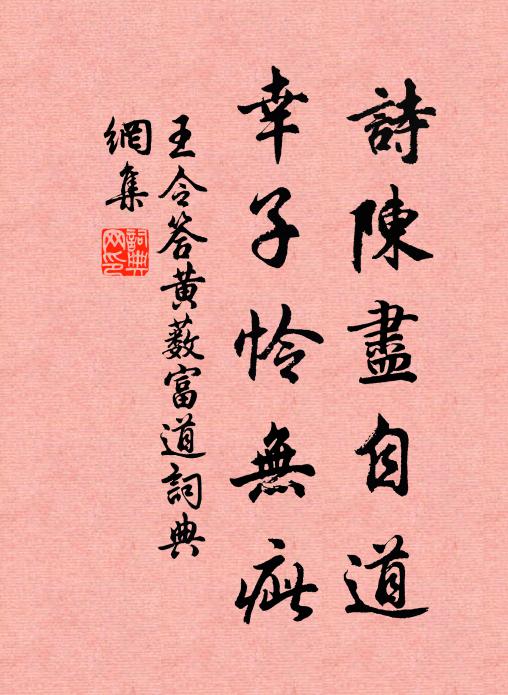 詩陳盡自道
幸子怜無疵
王令答黄薮富道詞典
網集
詞典網印